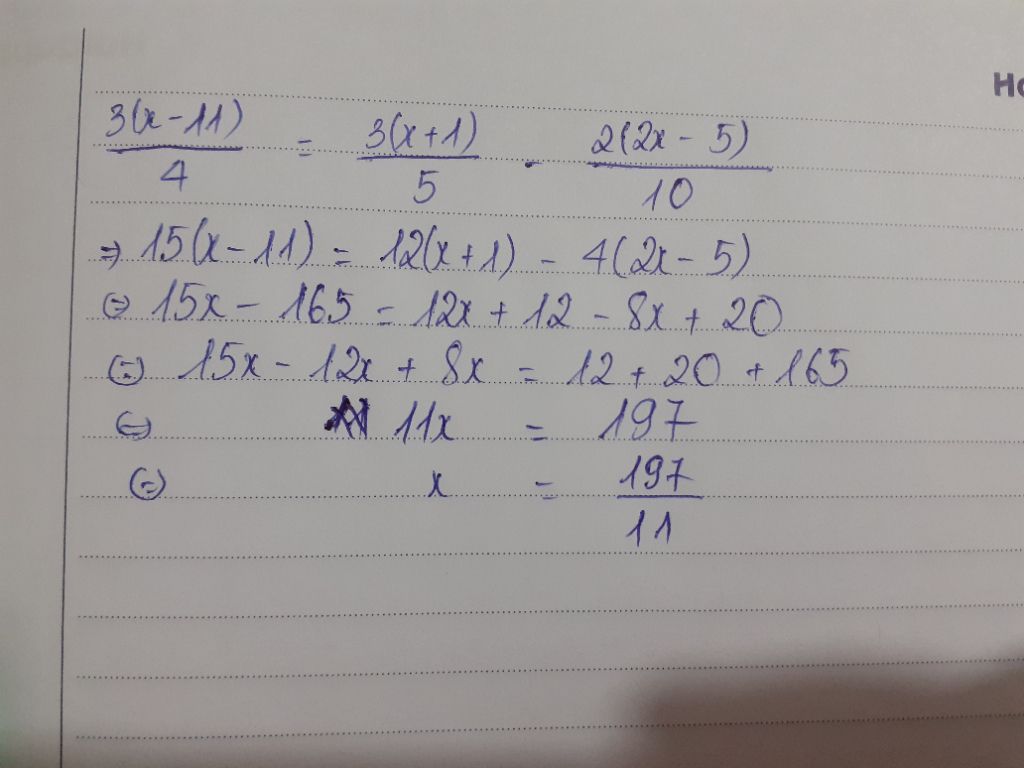 3(x-11)/4 = 3(x+1)/5 - 2(2x-5)/10
⇒ 15(x-11) = 12(x+1) - 4(2x-5)
⇔ 15x - 165 = 12x + 12 - 8x + 20
⇔ 15x - 12x + 8x = 12 + 20 + 165
⇔ 11x = 197
⇔ x = 197/11